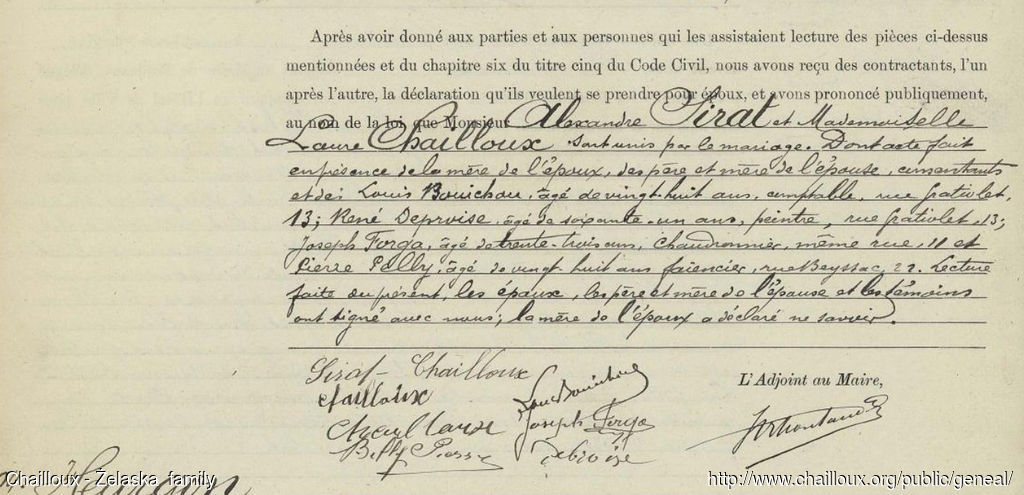 Après avoir donné aux parties et aux personnes qui les assistaient lecture des pièces ci-dessus
mentionnées et du chapitre six du titre cinq du Code Civil, nous avons reçu des contractants, l'un
après l'autre, la déclaration qu'ils veulent se prendre pour époux, et avons prononcé publiquement,
au nom de la loi, que Monsieur Alexandre Sirat et Mademoiselle
Laure Chailloux sont unis par le mariage. Dont acte fait
en présence de la mère de l'époux, des père et mère de l'épouse, consentants
et des Louis Bouichou, âgé de vingt-huit ans, comptable, rue
13; René Debroise, âgé de soixante-un ans, peintre, rue 13;
Joseph Forga, âgé de trente-trois ans, chaudronnier, même rue, 11 et
Pierre âgé de vingt-huit ans faïencier, rue Beyssac, 22. Lecture
faite du présent, les époux, les père et mère de l'épouse et les témoins
ont signé avec nous; la mère de l'époux a déclaré ne savoir.
L'Adjoint au Maire,
Sirat - Chailloux
chailloux
Joseph Forga
Debroise
Chailloux - Želaska family
http://www.chailloux.org/public/geneal/